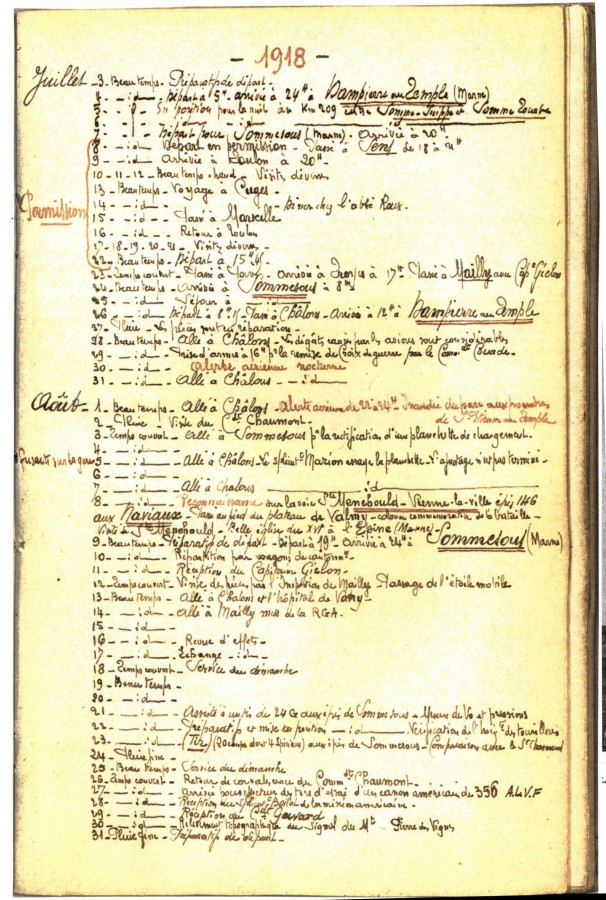 - 1918 -
Juillet - 3 - Beau temps - Préparatifs de départ -
4 - - id - Départ à 5H arrivée à 24H à Dampierre au Temple (Marne)
5 - - - En position pour la nuit au Km 209 entre Somme-Suippe et Somme Tourbe
6 - - id
7 - - Départ pour Sommesous (Marne) - Arrivée à 20H
8 - - id - Départ en permission - Passé à Sens de 18 à 21H
9 - - id - Arrivée à Toulon à 20H -
10 - 11 - 12 - Beau temps chaud - Visites diverses
13 - Beau temps - Voyage à Cuges -
Permission
14 - - id - - Dîner chez l'abbé Roux -
15 - - id - - Passé à Marseille
16 - - id - - Retour à Toulon
17 - 18 - 19 - 20 - 21 - Visites diverses -
22 - Beau temps - Départ à 15H
23 - Temps couvert - Passé à - arrivée à Troyes à 17H Passé à Mailly avec Cape Gielon
24 - Beau temps - Arrivée à Sommesous à 8H
25 - - id - Séjour à - id -
26 - - id - Départ à 8H - Passé à Châlons - Arrivée à 12H à Dampierre au Temple
27 - Pluie - Les pièces sont en réparation -
28 - Beau temps - Allé à Châlons - Les dégâts causés par les avions sont considérables
29 - - id - Prise d'armes à 16H pr la remise de Croix de guerre par le Commdt
30 - - id - Alerte aérienne nocturne
31 - - id - Allé à Châlons - - id -
Août - 1 - Beau temps - Allé à Châlons - Alerte avions de 22 à 24H Incendie du parc aux poudres
de St Etienne au Temple
2 - Pluie - Visite du Cdt Chaumont -
3 - Temps couvert - Allé à Sommesous pr la rectification d'une planchette de chargement -
4 - - id -
5 - - id - Allé à Châlons - Le Marion essaye la planchette - L'ajustage n'est pas terminé -
6 - - id -
7 - - id - Allé à Châlons - id -
8 - - id - Reconnaissance sur la voie Ste Menehould - Vienne-la-Ville épis 146
aux Naviaux - Passé au pied du plateau de Valmy - colonne commémorative de la bataille -
Visite de Ste Menehould - Belle église du XVIe à L'Epine (Marne) -
9 - Beau temps - Préparatifs de départ - Départ à 19H arrivée à 24H à Sommesous (Marne)
10 - - id - Répartition par wagons de cantonnt -
11 - - id - Réception du Capitaine Gielon -
12 - Temps couvert - Visite des pièces par l'Inspection de Mailly - Passage de l'étoile mobile
13 - Beau temps - Allé à Châlons et l'hôpital de Vatry -
14 - - id - Allé à Mailly mess de la RGA -
15 - - id -
16 - - id - Revue d'effets -
17 - - id - Échange - id -
18 - Temps couvert - Service du dimanche
19 - Beau temps -
20 - - id -
21 - - id - Assisté à un tir de 24 G aux épis de Sommesous - Mesure de Vo et pressions
22 - - id - Préparatifs et mise en position - id - Vérification de l' des tourillons
23 - - id - (Tir) aux épis de Sommesous - Comparaison avec le St Chamond
24 - Pluie fine -
25 - Beau temps - Service du dimanche
26 - Temps couvert - Retour de convalescence du Commdt Chaumont -
27 - - id - Arrivée des tirs d'essai d'un canon américain de 356 A.L.V.F
28 - - id - Réception de la mission américaine -
29 - - id - Réception du
30 - - id - Relèvement topographique au signal du Mt
31 - Pluie fine - Préparatifs de départ -